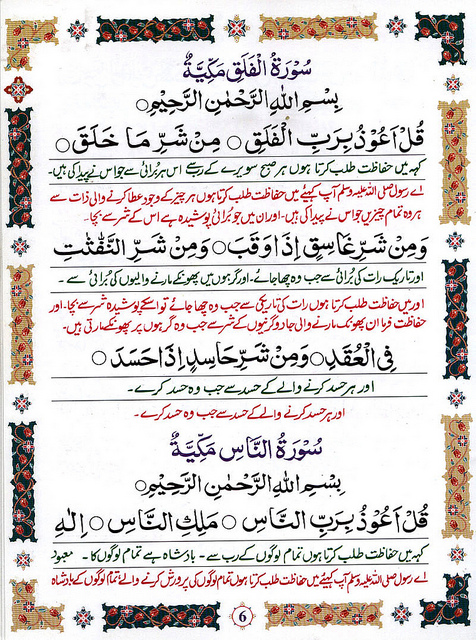 سُوْرَةُ الْفَلَقِ مَكِّيَّةٌ
بِسْمِ اللّٰهِ الرَّحْمٰنِ الرَّحِيْمِ○
قُلْ اَعُوْذُ بِرَبِّ الْفَلَقِ○ مِنْ شَرِّ مَا خَلَقَ○
کہہ میں حفاظت طلب کرتا ہوں ہر صبح سویرے کے رب سے اس ہر بُرائی سے جو اس نے پیدا کی ہیں۔
اے رسول صلی اللہ علیہ وسلم آپ کہیئے میں حفاظت طلب کرتا ہوں ہر چیز کے وجود عطا کرنے والی ذات سے
ہر وہ تمام چیزیں جو اس نے پیدا کی ہیں۔ اور ان میں جو بُرائی پوشیدہ ہے اس کے شر سے بچا۔
وَمِنْ شَرِّ غَاسِقٍ اِذَا وَقَبَ○ وَمِنْ شَرِّ النَّفّٰثٰتِ
اور تاریک رات کی بُرائی سے جب وہ چھا جائے۔ اور گرہوں میں پھونکے مارنے والیوں کی بُرائی سے ۔
اور میں حفاظت طلب کرتا ہوں رات کی تاریکی سے جب وہ چھا جائے تو اسکے پوشیدہ شر سے بچا۔ اور
حفاظت فرما ان پھونک مارنے والی جادوگرنیوں کے شر سے جب وہ گرہوں پر پھونکے مارتی ہیں۔
فِي الْعُقَدِ○ وَمِنْ شَرِّ حَاسِدٍ اِذَا حَسَدَ○
اور ہر حسد کرنے والے کے حسد سے جب وہ حسد کرے۔
اور ہر حسد کرنے والے کے حسد سے جب وہ حسد کرے۔
سُوْرَةُ النَّاسِ مَكِّيَّةٌ
بِسْمِ اللّٰهِ الرَّحْمٰنِ الرَّحِيْمِ○
قُلْ اَعُوْذُ بِرَبِّ النَّاسِ○ مَلِكِ النَّاسِ○ اِلٰهِ
کہہ میں حفاظت طلب کرتا ہوں تمام لوگوں کے رب سے ۔ بادشاہ ہے تمام لوگوں کا ۔ معبود
اے رسول صلی اللہ علیہ وسلم آپ کہیئے میں حفاظت طلب کرتا ہوں تمام لوگوں کی پرورش کرنے والے تمام لوگوں کے بادشاہ
6